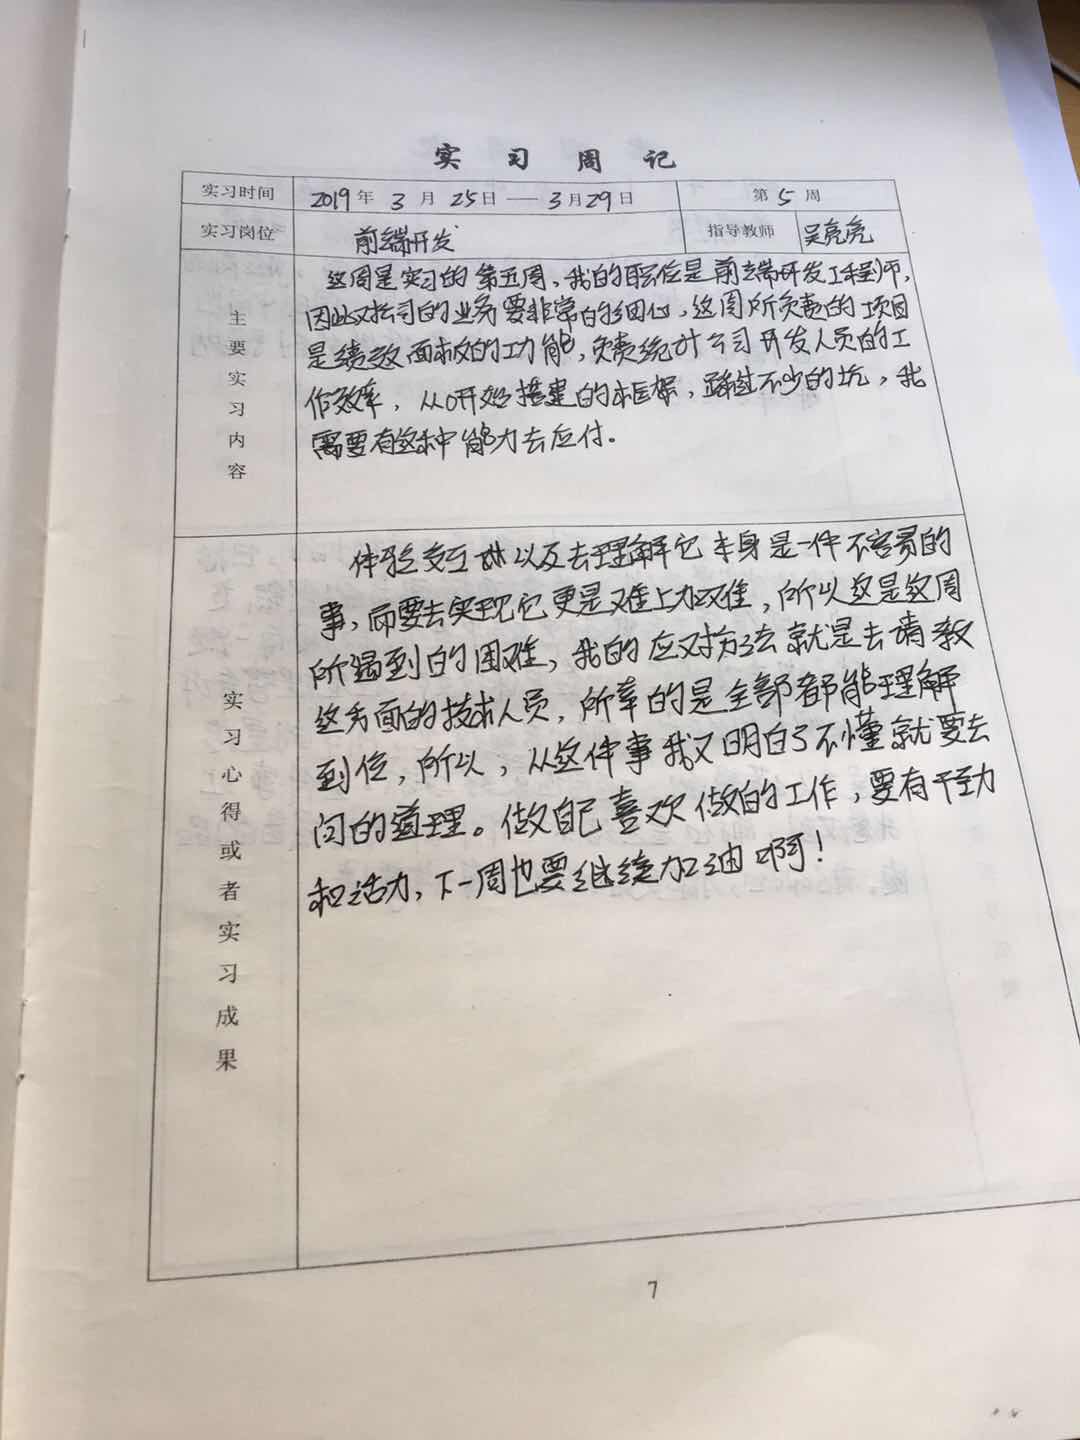 实习周记
实习时间 2019年3月25日——3月29日 第5周
实习岗位 前端开发 指导教师 吴亮亮
主要实习内容
这周是实习的第五周，我的职位是前端研发工程师，
因此对公司的业务要非常的细心，这周所负责的项目
是绩效面板的功能，负责统计公司开发人员的工
作效率，从0开始搭建的框架，踩过不少的坑，我
需要有这种能力去应付。
实习心得或者实习成果
体验交互 以及去理解它本身是一件不容易的
事，而要去实现它更是难上加难，所以这是这周
所遇到的困难，我的应对方法就是去请教
这方面的技术人员，所幸的是全部都能理解
到位，所以，从这件事我又明白了不懂就要去
问的道理。做自己喜欢做的工作，要有干劲
和活力，下一周也要继续加油啊！
7